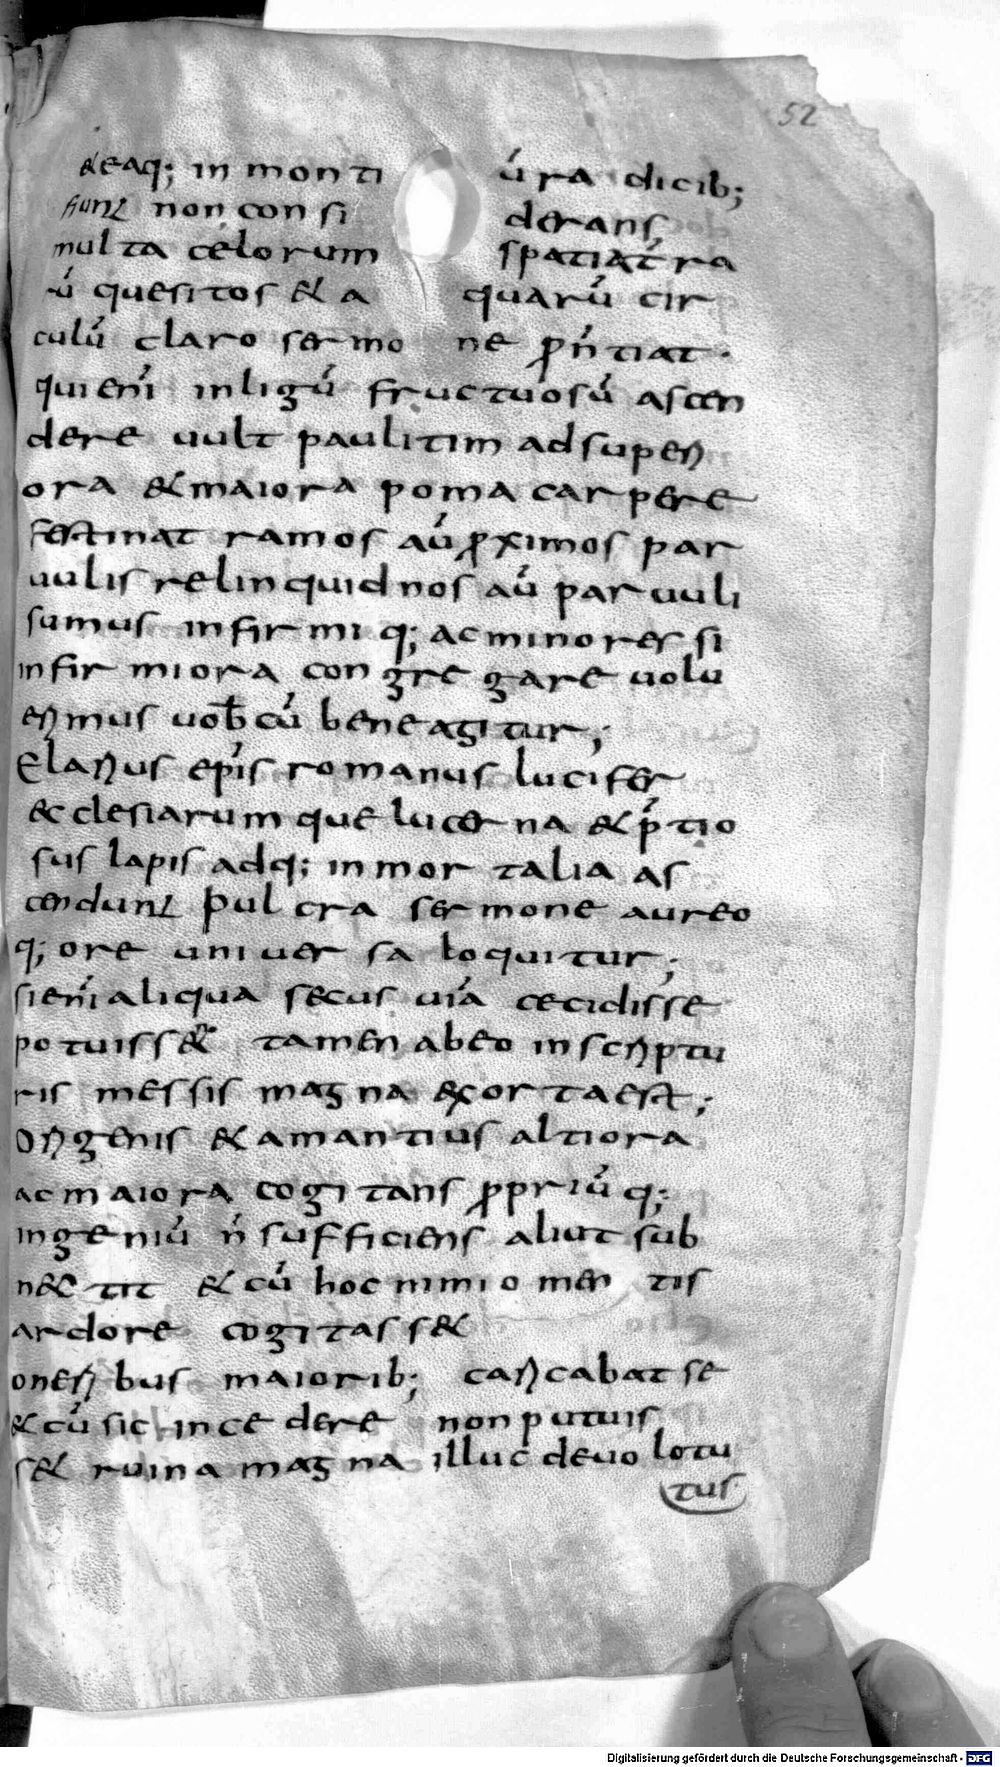 52
&eaq; in monti ū́ra dicib;
fiunt non consi derans
multa celorum spatiat́ra
ū quesitos & a quarū cir
culū claro sermo ne ꝓn̄tiat·
qui enī inligū fructuosū ascen
dere uult paulitim ad superi
ora & maiora poma carpere
festinat ramos aū ꝓximos par
uulis relinquid nos aū paruuli
sumus infirmiq; ac minores si
infirmiora congregare uolu
erimus uob̄cū bene agitur;
Elarius ep̄is romanus lucifer
&cclesiarum que lucerna & p̄tio
sus lapis adq; inmortalia as
cendunt pulcra sermone aureo
q; ore uniuersa loquitur;
si enī aliqua secus uiā cecidisse
potuisser& tamen ab eo in scriptu
ris messis magna &xorta est;
Origenis & amantius altiora
ac maiora cogitans ꝓpriūq;
ingeniū n̄ sufficiens aliut sub
nectit & cū hoc nimio men tis
ardore cogitass&
oneribus maiorib; caricabat se
& cū sic incedere non putuis
s& ruina magna illuc deuolotu
tus
Digitalisierung gefördert durch die Deutsche Forschungsgemeinschaft - DFG